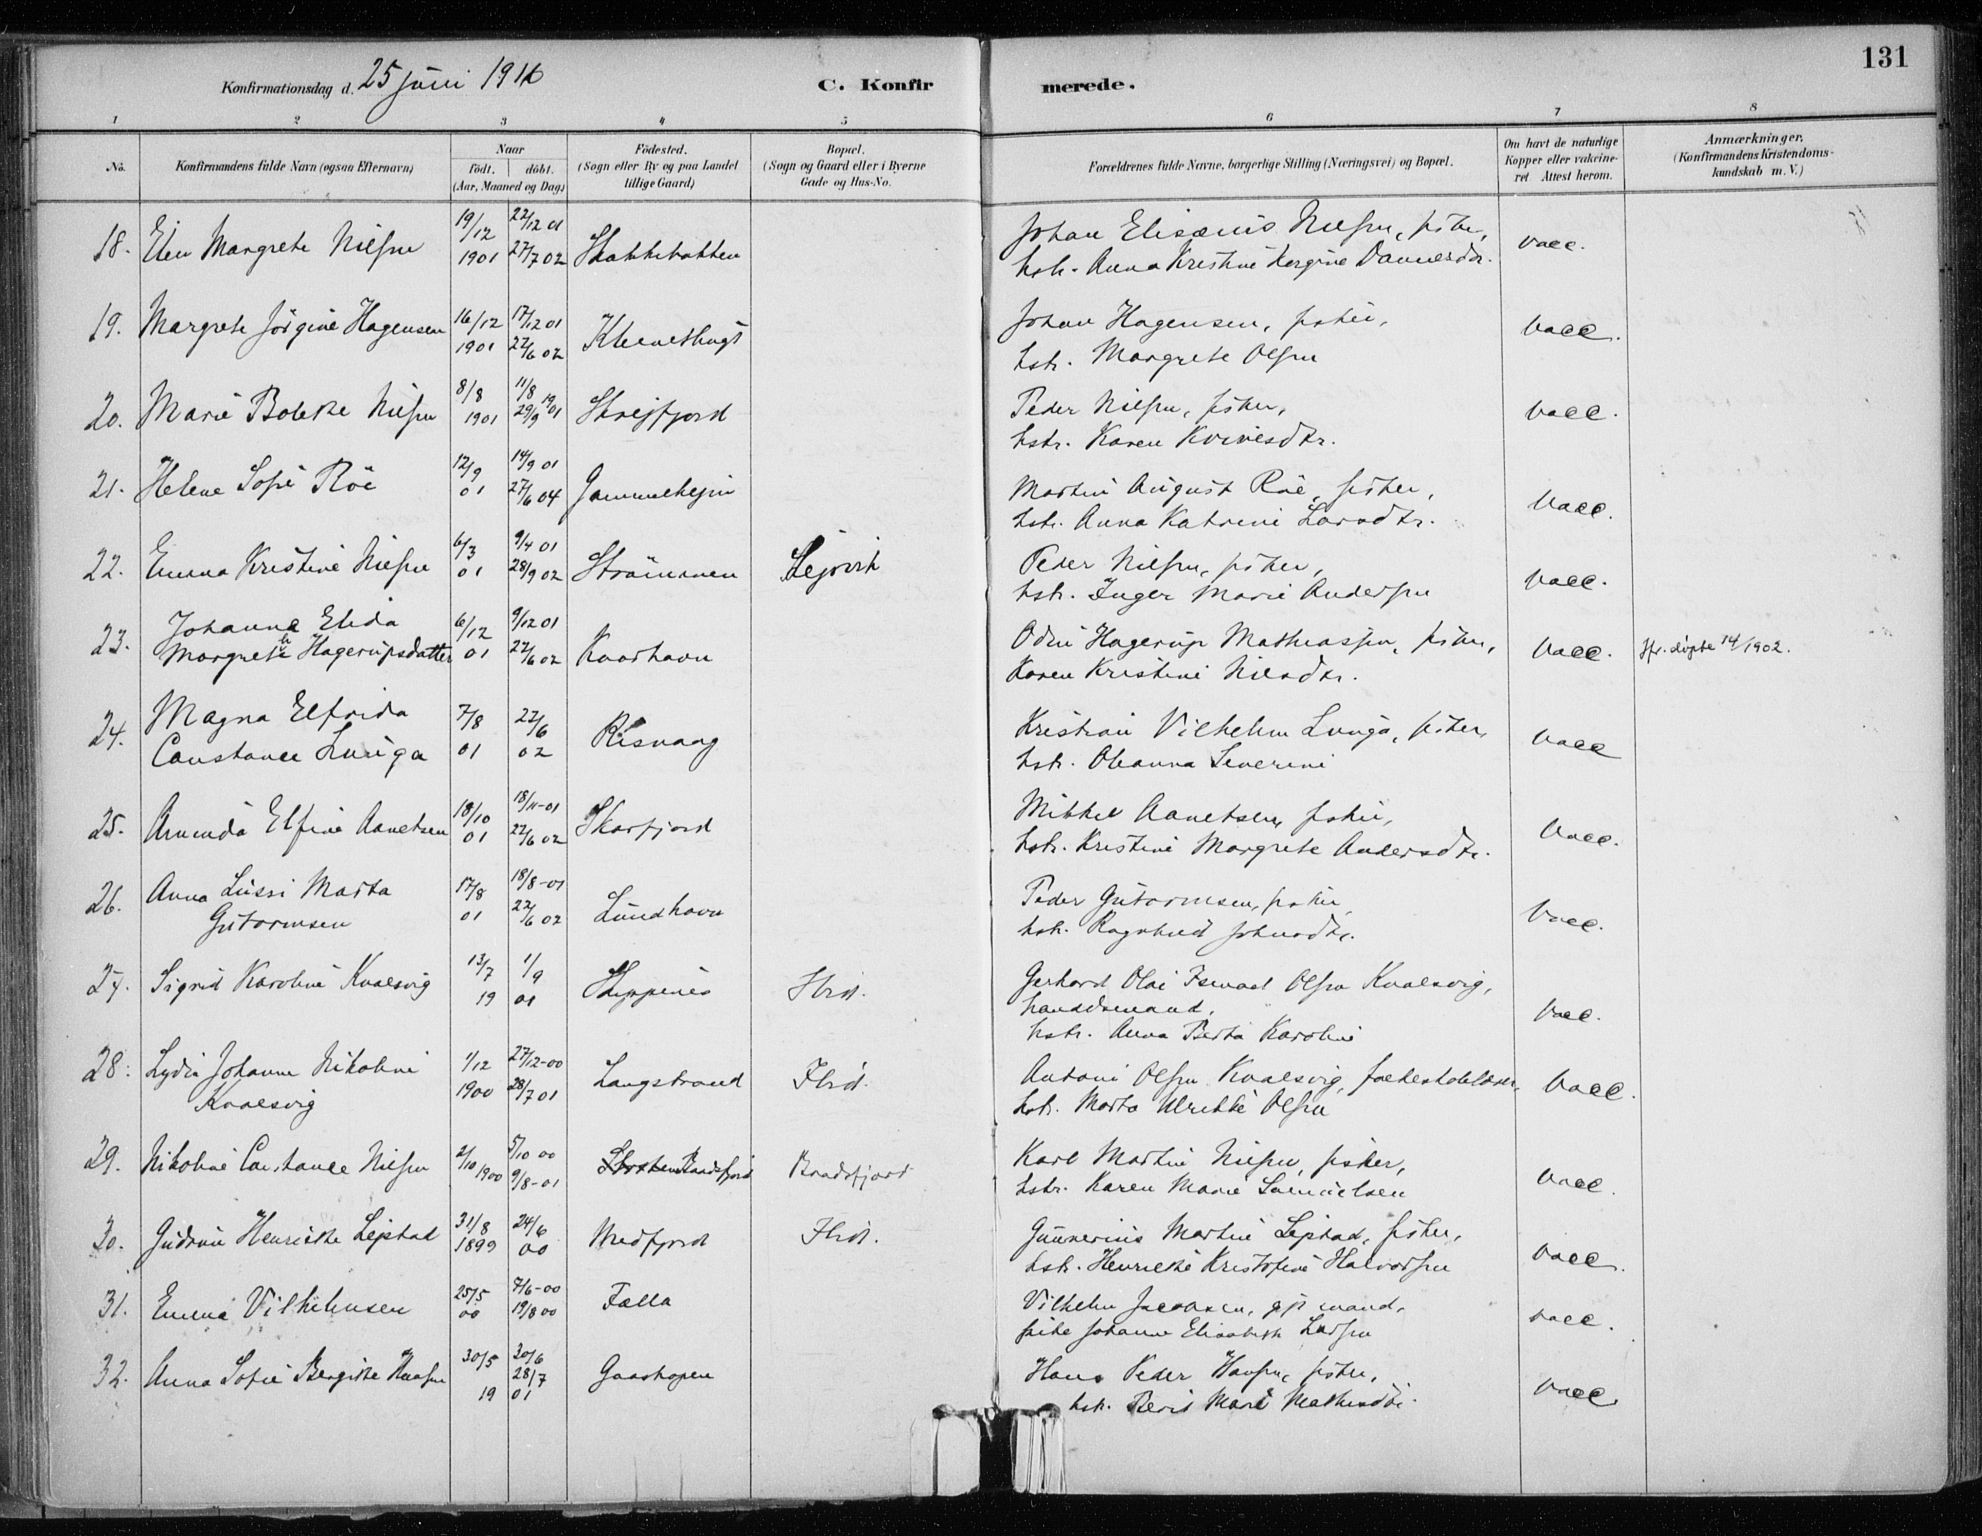 131
Konfirmationsdag d. 25 juni 1916
C. Konfirmerede.
1 2 3 4 5 6 7 8
No.
Konfirmandens fulde Navn (ogsaa Efternavn)
Naar
födt. döbt.
(Aar, Maaned og Dag)
Födested.
(Sogn eller By og paa Landet
tillige Gaard)
Bopæl.
(Sogn og Gaard eller i Byerne
Gade og Hus-No.
Forældrenes fulde Navne, borgerlige Stilling (Næringsvei) og Bopæl.
Om havt de naturlige
Kopper eller vakcine-
ret Attest herom.
Anmærkninger.
(Konfirmandens Kristendoms-
kundskab m. V.)
18. Elen Margrete Nilsen 19/12 1901 22/12 01 27/7 02 Stakkebakken Johan Elisæus Nilsen, fisker, vacc.
hstr. Anna Kristine Dannersdtr.
19. Margrete Jörgine Hagensen 16/12 1901 17/12 01 22/6 02 Johan Hagensen, fisker, vacc.
hstr. Margrete Olsen
20. Marie Boletke Nilsen 8/8 1901 11/8 29/9 1901 Skreifjord Peder Nilsen, fisker, vacc.
hstr. Karen
21. Helene Sofie Röe 12/9 01 14/9 01 27/6 04 Gammelhejm Martin August Röe, fisker, vacc.
hstr. Anna Katrine Larsdtr.
22. Emma Kristine Nilsen 6/3 01 9/4 01 28/9 02 Strömmen Lejrvik Peder Nilsen, fisker, vacc.
hstr. Inger Marie Andersen
23. Johanna Elida
Margrethe Hagerupsdatter 6/12 01 9/12 01 22/6 02 Kvarhavn Odin Hagerup Mathiassen, fisker, vacc. Hj. døpte 14/1902.
Karen Kristine Nilsdtr.
24. Magna Elfrida
Constance Lunga 7/8 01 22/6 02 Risvaag Kristian Vilhelm Lunga, fisker, vacc
hstr. Oleanna Severine
25. Amunda Elfine Aanetsen 18/10 01 18/11-01 22/6 02 Skarfjord Mikkel Aanetsen, fisker, vacc.
hstr. Kristine Margrete Andersdtr.
26. Anna Lussi Marta
Gutormsen 17/8 01 18/8-01 22/6 02 Lundhavn Peder Gutormsen, fisker, vacc.
hstr. Ragnhild Johnsdtr.
27. Sigrid Karoline Kvalsvig 13/7 19 1/9 01 Skippernes Hfid. Gerhard Olai Olsen Kvalsvig, vacc.
handelsmand,
hstr. Anna Berta Karoline
28. Lydia Johanne Nikoline
Kvalsvig 1/12 1900 27/12-00 28/7 01 Langstrand Hfid. Antoni Olsen Kvalsvig, vacc.
hstr. Marta Ulrikke Olsen
29. Nikoline Constance Nilsen 2/10 1900 5/10 00 9/8-01 Baadsfjord Baadsfjord Karl Martin Nilsen, fisker, vacc.
hstr. Karen Marie Samuelsen
30. Gudrun Henrikke Lejstad 31/8 1899 24/6 00 Medfjord Hfid. Gunnerius Martin Lejstad, fisker, vacc.
hstr. Henrikke Kristofine Halvorsen
31. Emma Vilhelmsen 25/5 00 7/6-00 19/8 00 Fælla Vilhelm Jacobsen, gift mand, vacc.
pike Johanne Elisabeth Larsen
32. Anna Sofie Bergitte Hansen 30/5 19 30/6 28/7 01 Gaashopen Hans Peder Hansen, fisker, vacc.
hstr. Berit Mari Mathisdtr.